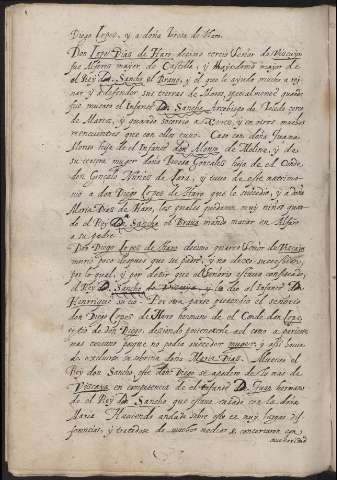 Diego Lopes, y a doña Urraca de Haro.
Don Lope Dias de Haro, decimo tercio Señor de Vizcaya
fue Alferes mayor de Castilla, y Mayordomo mayor de
el Rey don Sancho el Bravo, y el que le ayudo mucho a rei
nar y a defender sus tierras de Moros, especialmente quando
fue muerto el Infante D. Sancho Arcobispo de Toledo cerca
de Martos, y quando socorrio a y en otros muchos
rencuentros que con ellos tuvo. Caso con doña Juana
Alonso hija de el Infante don Alonso de Molina, y de
su tercera muger doña Teresa Gonzales hija de el Conde
don Gonzalo Nuñez de Lara, y tuvo de este matrimo
nio a don Diego Lopes de Haro que le sucedio, y a doña
Maria Dias de Haro, los quales quedaron muy niños quan
do el Rey D. Sancho el Bravo mando matar en Alfaro
a su padre.
Don Diego Lopes de Haro decimo quarto Señor de Vizcaya
murio poco despues que su padre, y no dexo succession,
por lo qual, y por decir que el Señorio estava confiscado,
el Rey D. Sancho de Vizcaya, y la dio al Infante D.
Henrrique su tio. Por otra parte pretendio el señorio
don Diego Lopes de Haro hermano de el Conde don Lope,
y tio de don Diego, diciendo pertenecerle asi como a pariente
mas cercano porque no podia succeder muger, y asi havia
de excluirse su sobrina doña Maria Dias. Muerto el
Rey don Sancho, este don Diego se apodero de lo mas de
Vizcaya en competencia de el Infante D. Juan hermano
de el Rey don Sancho que estava casado con la doña
Maria. Haviendo andado sobre esto en muy largas di
ferencias, y tratadose de muchos medios se concertaron con